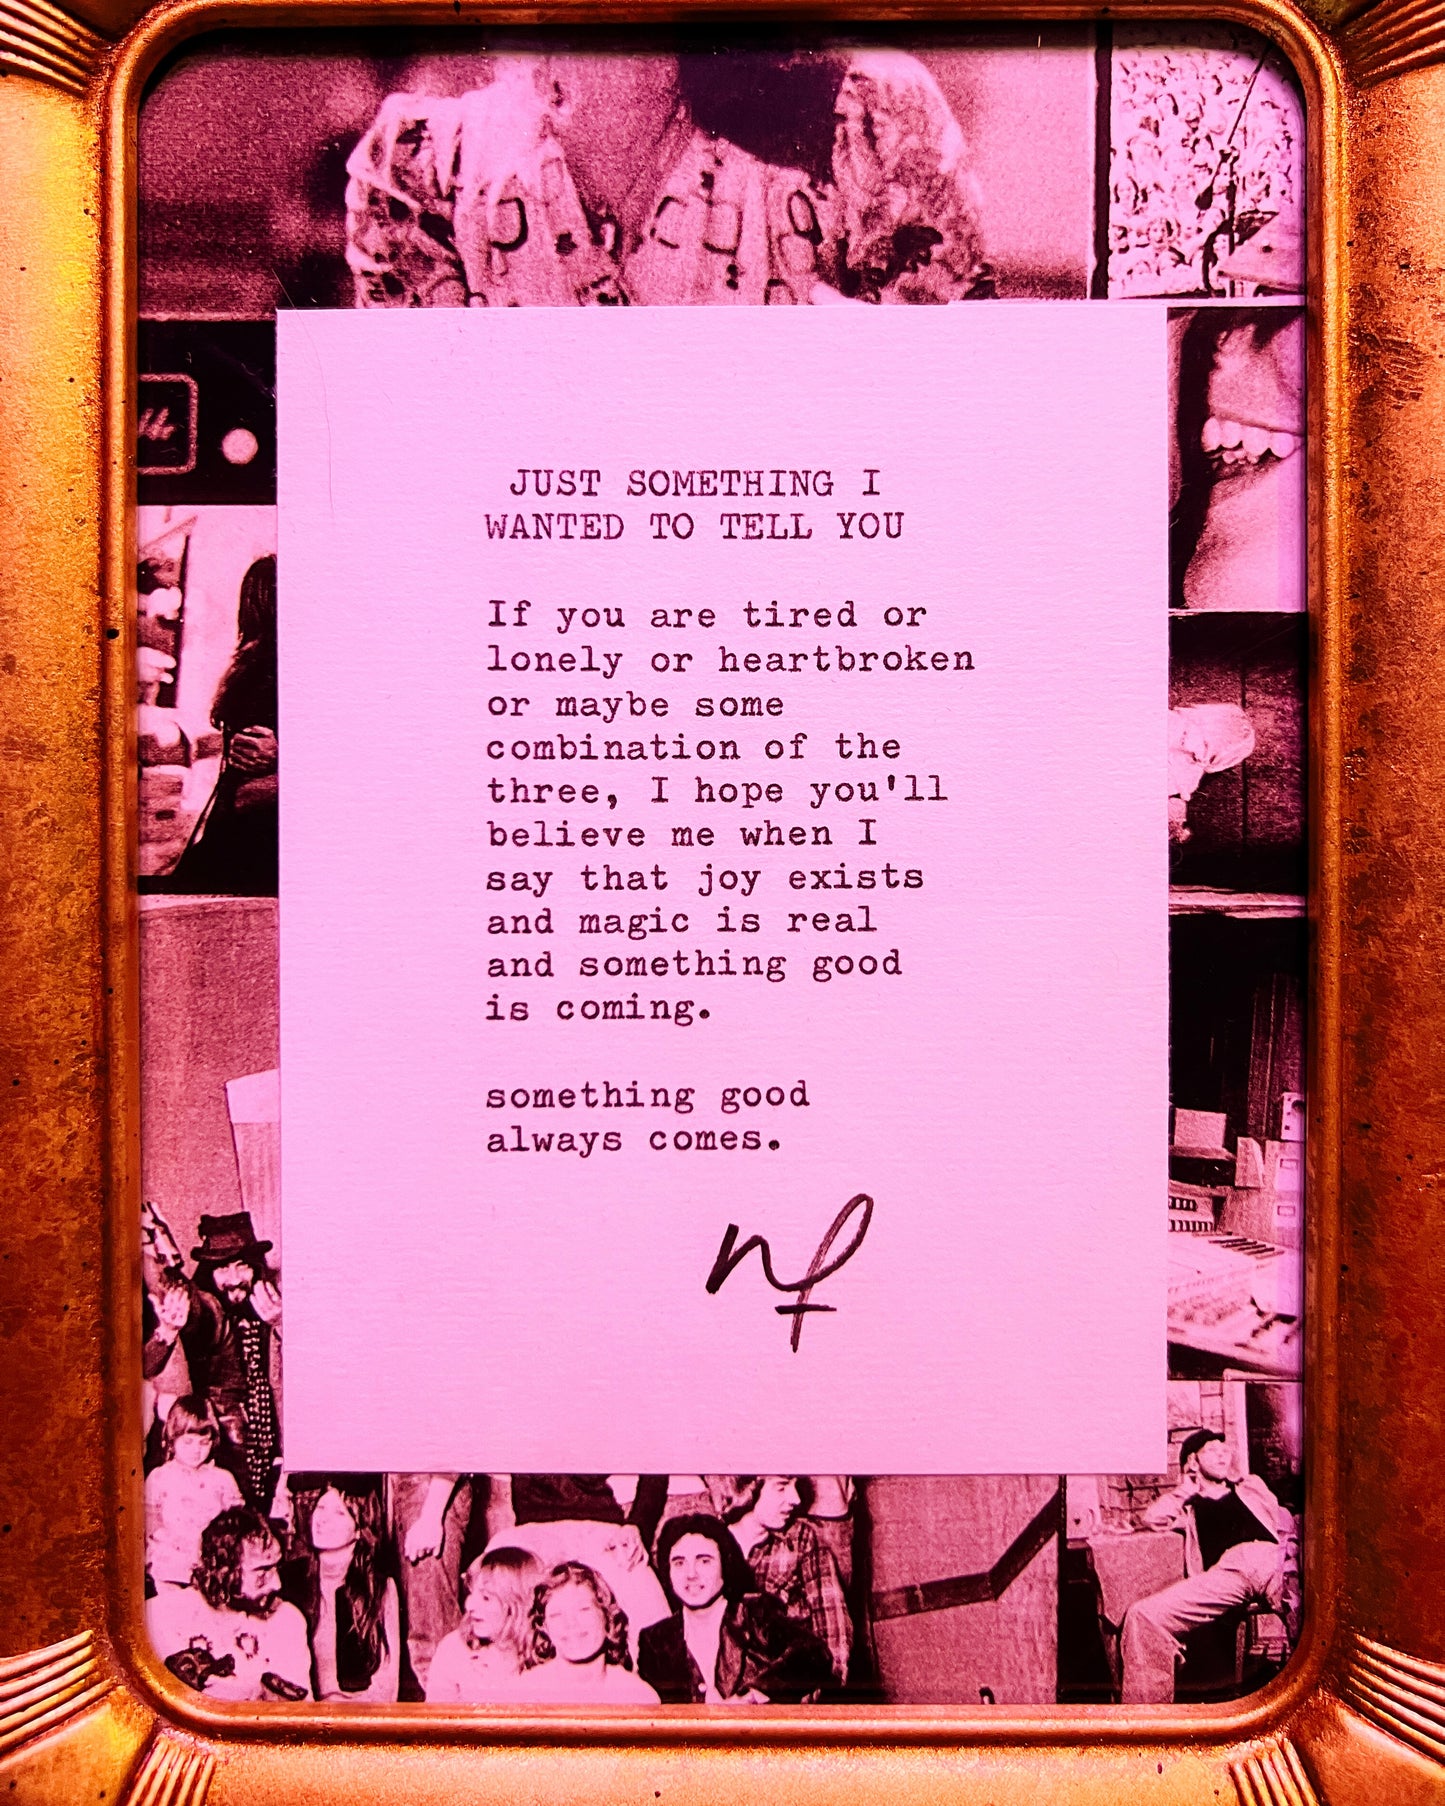 JUST SOMETHING I
WANTED TO TELL YOU
If you are tired or
lonely or heartbroken
or maybe some
combination of the
three, I hope you'll
believe me when I
say that joy exists
and magic is real
and something good
is coming.
something good
always comes.
nf